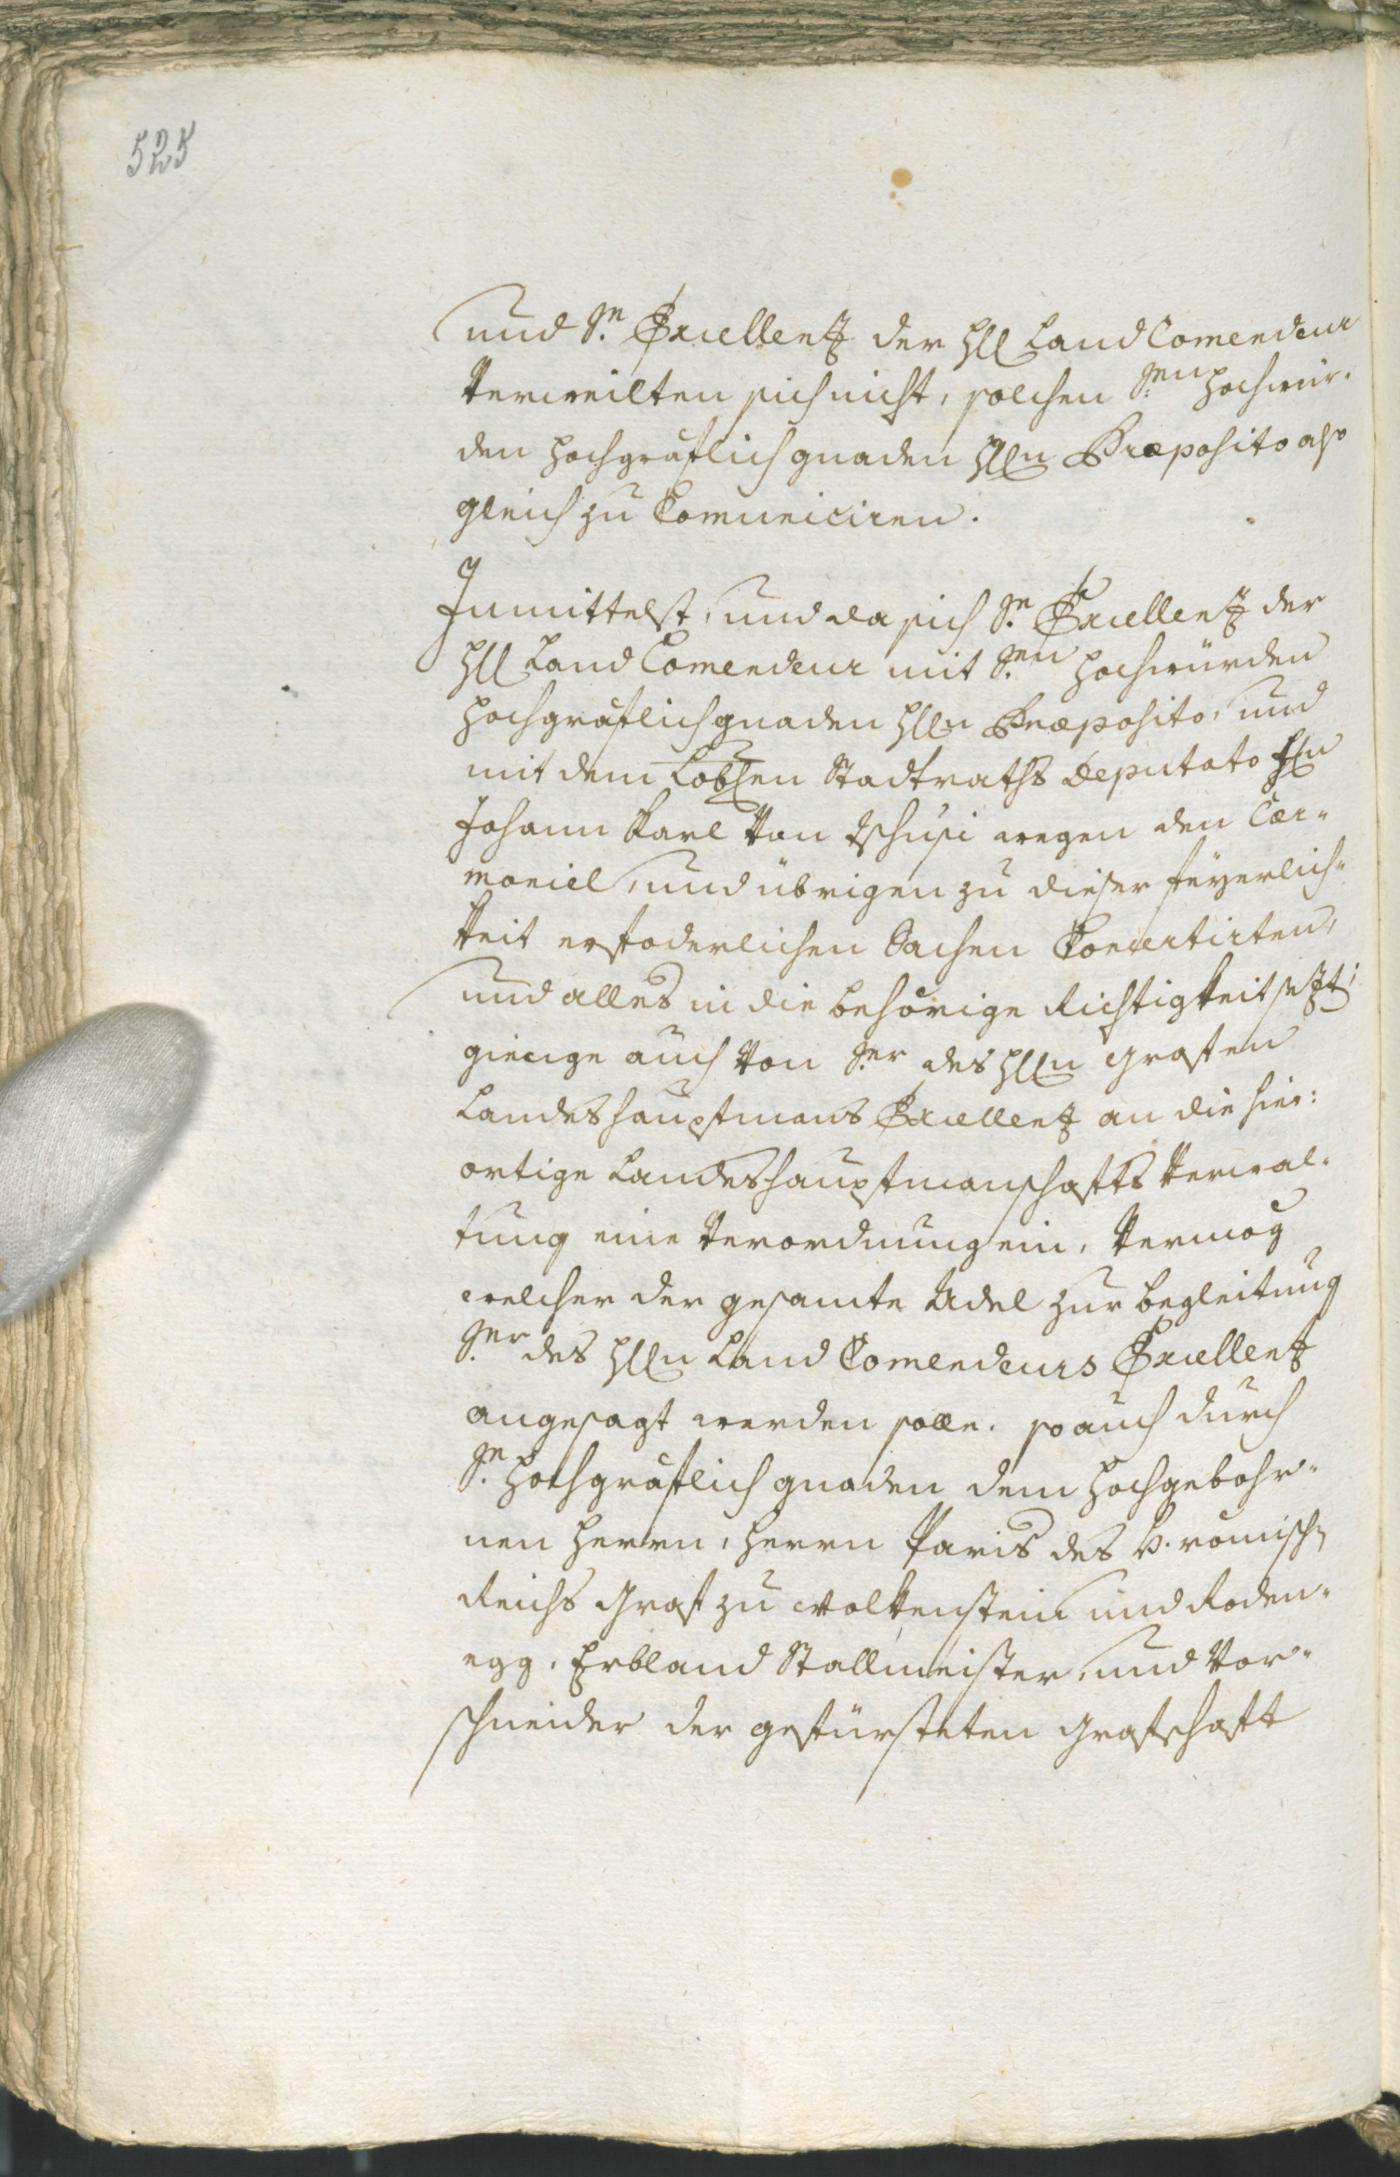 525
und Se Excellenz der H Land Comendeur
verweilten sich nicht, solchen Sen Hochwür-
den Hochgräflich gnaden Hn Præposito also
gleich zu Comuniciren.
Inmittelst, und da sich Se Excellenz der
H Land Comendeur mit Sen Hochwürden
Hochgräflich gnaden Hn Præposito, und
mit dem Löben Stadtraths Deputato Hn
Johann Karl von Tschusi wegen den Cær-
moniel, und übrigen zu dieser feyerlich-
keit erfoderlichen Sachen Koncertirten,
und alles in die behörige Richtigkeit sezt;
gienge auch von Ser des Hn Grafen
Landeshauptmans Excellenz an die hier:
ortige Landeshauptmanschafts verwal-
tung eine Verordnung ein, vermög
welcher der gesamte Adel zur begleitung
Ser des Hn Land Comendeurs Excellenz
angesagt werden solle. so auch durch
Se Hochgräflich gnaden dem Hochgebohr-
nen Herrn, Herrn Paris des H. römisch
Reichs Graf zu Wolkenstein und Roden-
egg, Erbland Stallmeister, und Vor-
schneider der gefürsteten Grafschaft